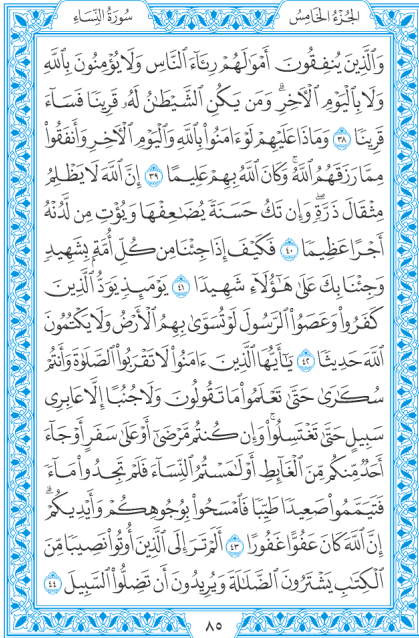 الجُزْءُ الخَامِسُ سُورَةُ النِّسَاءِ
وَالَّذِينَ يُنفِقُونَ أَمْوَٰلَهُمْ رِئَآءَ النَّاسِ وَلَا يُؤْمِنُونَ بِاللَّهِ
وَلَا بِالْيَوْمِ الْأَخِرِ ۗ وَمَن يَكُنِ الشَّيْطَٰنُ لَهُۥ قَرِينًا فَسَآءَ
قَرِينًا ٣٨ وَمَاذَا عَلَيْهِمْ لَوْ ءَامَنُوا۟ بِاللَّهِ وَالْيَوْمِ الْأَخِرِ وَأَنفَقُوا۟
مِمَّا رَزَقَهُمُ اللَّهُ ۚ وَكَانَ اللَّهُ بِهِمْ عَلِيمًا ٣٩ إِنَّ اللَّهَ لَا يَظْلِمُ
مِثْقَالَ ذَرَّةٍ ۖ وَإِن تَكُ حَسَنَةً يُضَٰعِفْهَا وَيُؤْتِ مِن لَّدُنْهُ
أَجْرًا عَظِيمًا ٤٠ فَكَيْفَ إِذَا جِئْنَا مِن كُلِّ أُمَّةٍۭ بِشَهِيدٍ
وَجِئْنَا بِكَ عَلَىٰ هَٰٓؤُلَآءِ شَهِيدًا ٤١ يَوْمَئِذٍ يَوَدُّ الَّذِينَ
كَفَرُوا۟ وَعَصَوُا۟ الرَّسُولَ لَوْ تُسَوَّىٰ بِهِمُ الْأَرْضُ وَلَا يَكْتُمُونَ
اللَّهَ حَدِيثًا ٤٢ يَٰٓأَيُّهَا الَّذِينَ ءَامَنُوا۟ لَا تَقْرَبُوا۟ الصَّلَوٰةَ وَأَنتُمْ
سُكَٰرَىٰ حَتَّىٰ تَعْلَمُوا۟ مَا تَقُولُونَ وَلَا جُنُبًا إِلَّا عَابِرِى
سَبِيلٍ حَتَّىٰ تَغْتَسِلُوا۟ ۚ وَإِن كُنتُم مَّرْضَىٰٓ أَوْ عَلَىٰ سَفَرٍ أَوْ جَآءَ
أَحَدٌ مِّنكُم مِّنَ الْغَآئِطِ أَوْ لَٰمَسْتُمُ النِّسَآءَ فَلَمْ تَجِدُوا۟ مَآءً
فَتَيَمَّمُوا۟ صَعِيدًا طَيِّبًا فَامْسَحُوا۟ بِوُجُوهِكُمْ وَأَيْدِيكُمْ ۗ
إِنَّ اللَّهَ كَانَ عَفُوًّا غَفُورًا ٤٣ أَلَمْ تَرَ إِلَى الَّذِينَ أُوتُوا۟ نَصِيبًا مِّنَ
الْكِتَٰبِ يَشْتَرُونَ الضَّلَٰلَةَ وَيُرِيدُونَ أَن تَضِلُّوا۟ السَّبِيلَ ٤٤
٨٥